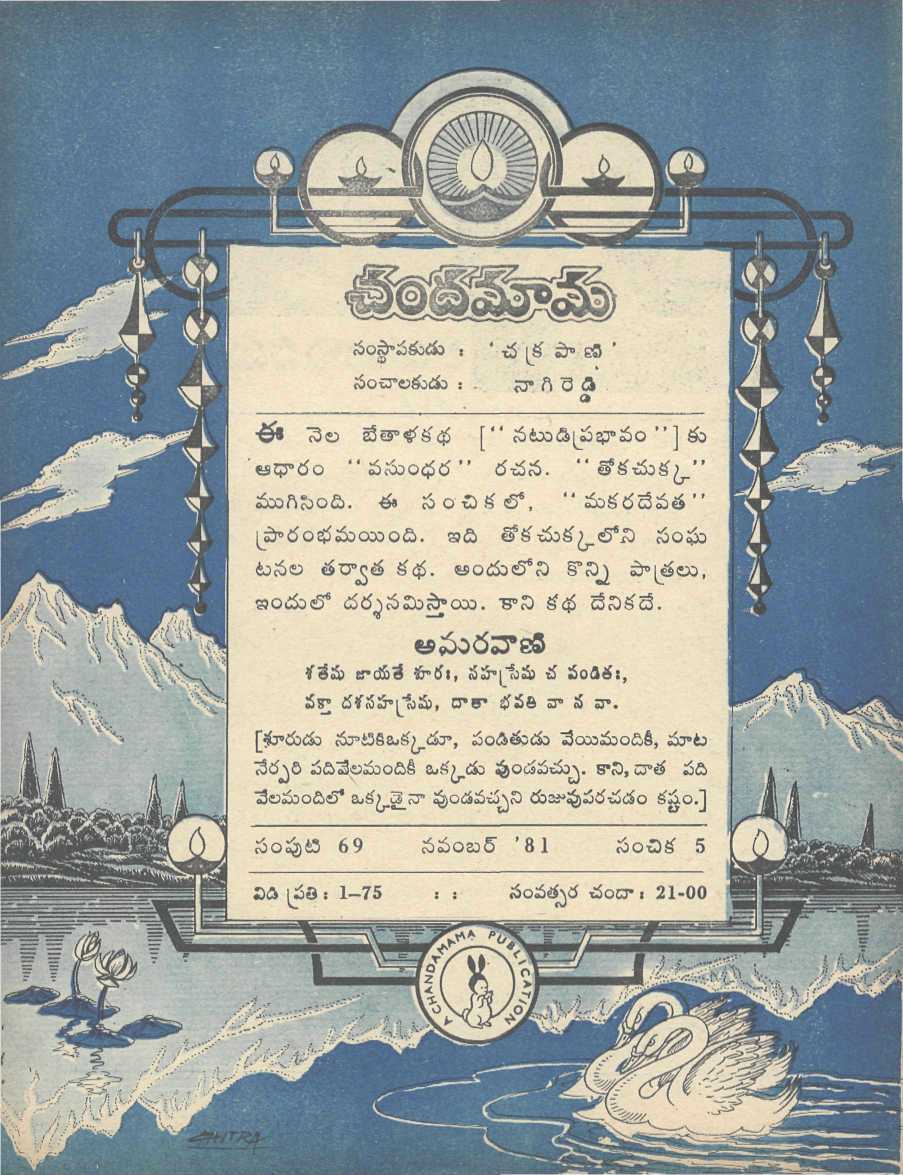 చందమామ
సంస్థాపకుడు : ' చక్రపాణి '
సంచాలకుడు : నాగిరెడ్డి
ఈ నెల బేతాళకథ ["నటుడి ప్రభావం"] కు
ఆధారం "వసుంధర" రచన. "తోకచుక్క"
ముగిసింది. ఈ సంచికలో, "మకరదేవత"
ప్రారంభమయింది. ఇది తోకచుక్కలోని సంఘ
టనల తర్వాత కథ. అందులోని కొన్ని పాత్రలు,
ఇందులో దర్శనమిస్తాయి. కాని కథ దేనికదే.
అమరవాణి
శతేషు జాయతే శూరః, సహస్రేషు చ పండితః,
వక్తా దశసహస్రేషు, దాతా భవతి వా న వా.
[శూరుడు నూటికిఒక్కడూ, పండితుడు వేయిమందికీ, మాట
నేర్పరి పదివేలమందికీ ఒక్కడు వుండవచ్చు. కాని, దాత పది
వేలమందిలో ఒక్కడైనా వుండవచ్చని రుజువుపరచడం కష్టం.]
సంపుటి 69 నవంబర్ '81 సంచిక 5
విడి ప్రతి : 1–75 : : సంవత్సర చందా : 21-00
A CHANDAMAMA PUBLICATION
CHITRA